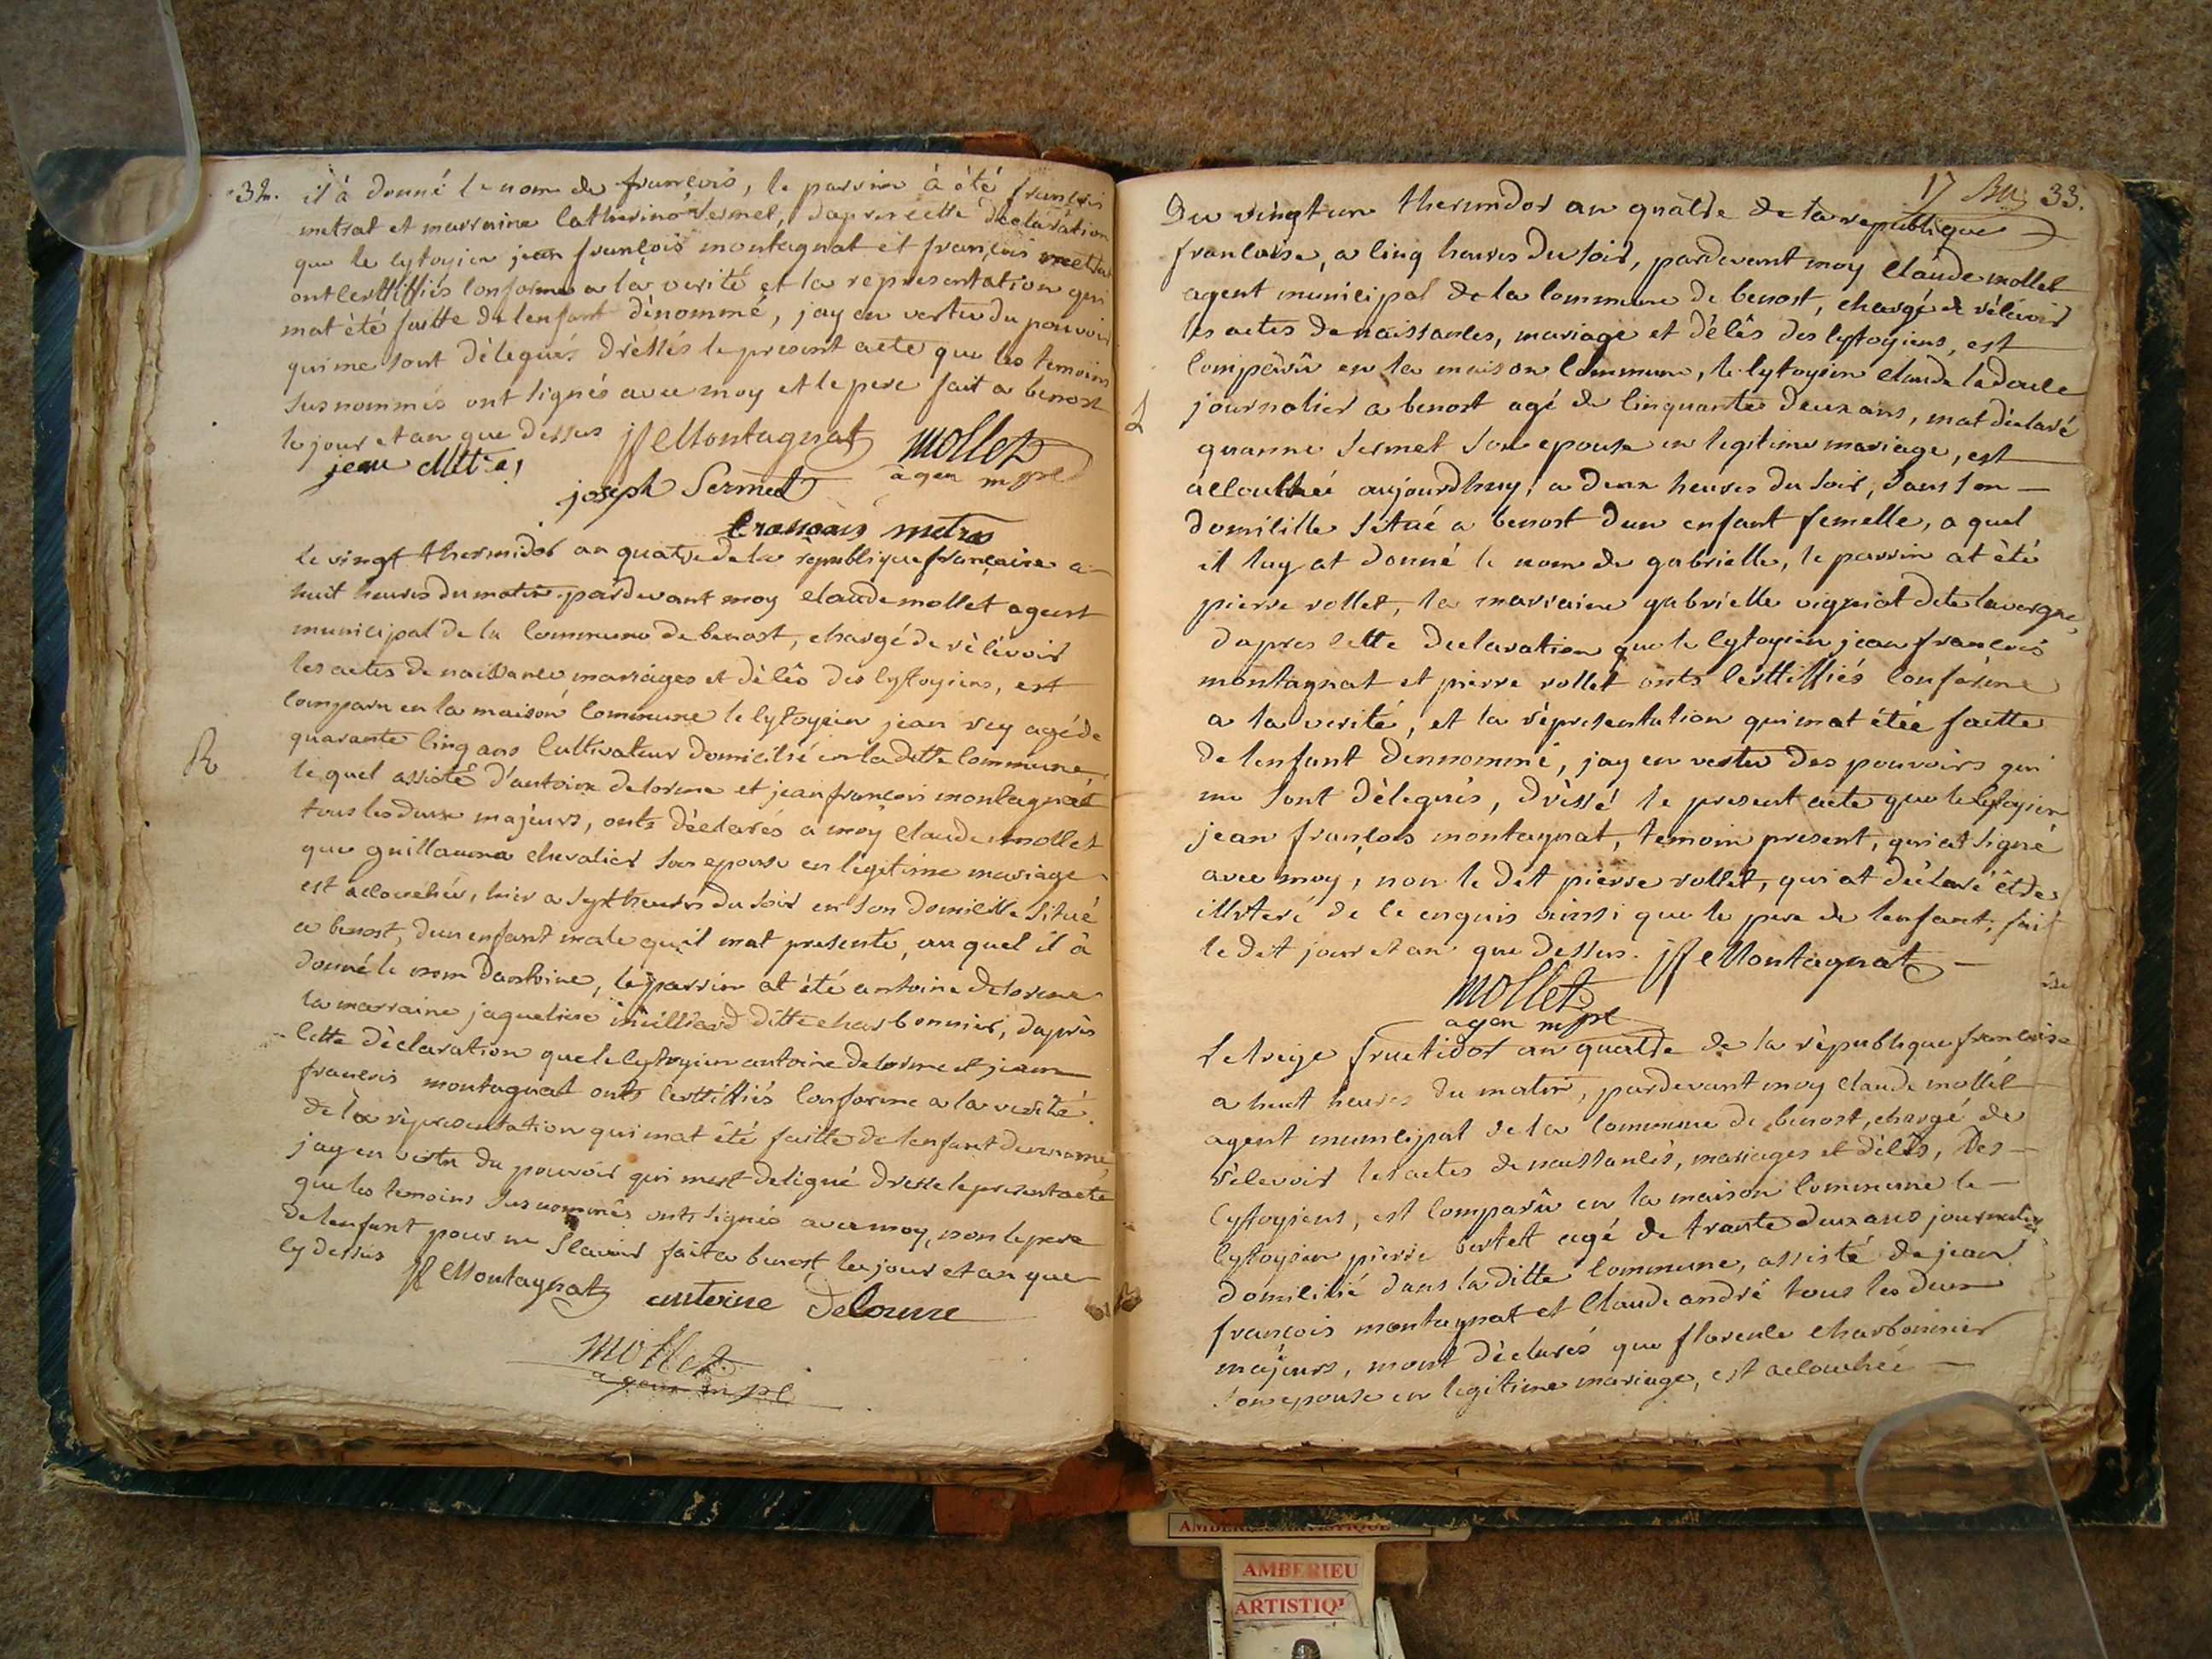 32. il à donné le nom de françois, le parrin à été françois
metrat et marraine Catherine Sermet, dapres cette déclaration
que le cytoyien jean françois montagnat et françois metra
ont certiffiés conforme a la verité et la representation qui
mat été faitte de lenfant dénommé, jay en vertu du pouvoir
qui me sont délegués dréssés le present acte que les temoins
susnommés ont signés avec moy et le pere fait a benost
le jour et an que dessus jf Montagnat mollet
jean
joseph Sermet agen mpl
francois metra
le vingt thermidor an quatre de la république françaice a
huit heures du matin pardevant moy claude mollet agent
municipal de la commune de benost, chargé de récévoir
les actes de naissance mariages et décês des cytoyiens, est
comparu en la maison commune le cytoyien jean rey agé de
R
quarante cinq ans cultivateur domicilié en la ditte commune,
le quel assisté d'antoine delorme et jean françois montagnat
tous les deux majeurs, onts déclarés a moy claude mollet
que guillauma chevalier son epouse en legitime mariage
est accouchée, hier a sept heures du soir en son domicille situé
a benost, dun enfant male quil mat presenté, au quel il à
donné le nom dantoine, le parrin at été antoine delorme
la marraine jaqueline ditte charbonnier, daprès
cette déclaration que le cytoyien antoine delorme et jean
francois montagnat onts certiffiés conforme a la verité
de la répresentation qui mat été faitte de lenfant denommé,
jay en vertu du pouvoir qui mest deligué dresse le present acte
que les temoins susnommés onts signés avec moy, non le pere
de lenfant pour ne scavoir fait a benost les jour et an que
cy dessus jf Montagnat antoine Delorme
mollet
agen mpl
17 33.
Du vingt un thermidor an quatre de la republique
francoise, a cinq heures du soir, pardevant moy claude mollet
agent municipal de la commune de benost, chargé de récévoir
les actes de naissances, mariage et décês des cytoyiens, est
comparû en la maison commune, le cytoyien claude ladouce
L
journalier a benost agé de cinquante deux ans, mat déclaré
quanne Sermet son epouse en legitime mariage, est
accouchée aujourdhuy, a deux heures du soir, dans son
domicille situé a benost dun enfant femelle, a quel
il luy at donné le nom de gabrielle, le parrin at été
pierre rollet, la marraine gabrielle vigniot dite lavorgne,
dapres cette declaration que le cytoyien jean francois
montagnat et pierre rollet onts certiffiés conforme
a la verité, et la répresentation qui mat étée faitte
de lenfant dennommé, jay en vertu des pouvoirs qui
me sont délegués, dréssé le present acte que le cytoyien
jean françois montagnat, temoin present, qui at signé
avec moy, non le dit pierre rollet, qui at déclaré être
illiteré de ce enquis ainssi que le pere de lenfant, fait
le dit jour et an que dessus. jf Montagnat
mollet
agen mpl
Le treize fructidor an quatre de la république francoise
a huit heures du matin, pardevant moy claude mollet
agent municipal de la commune de benost, chargé de
récevoir les actes de naissancés, mariages et décês, des
cytoyiens, est comparû en la maison commune le
cytoyien pierre bertet agé de trante deux ans journalier
domicilié dans la ditte commune, assisté de jean
françois montagnat et claude andré tous les deux
majeurs, mont déclarés que florence charbonnier
son epouse en legitime mariage, est accouchée